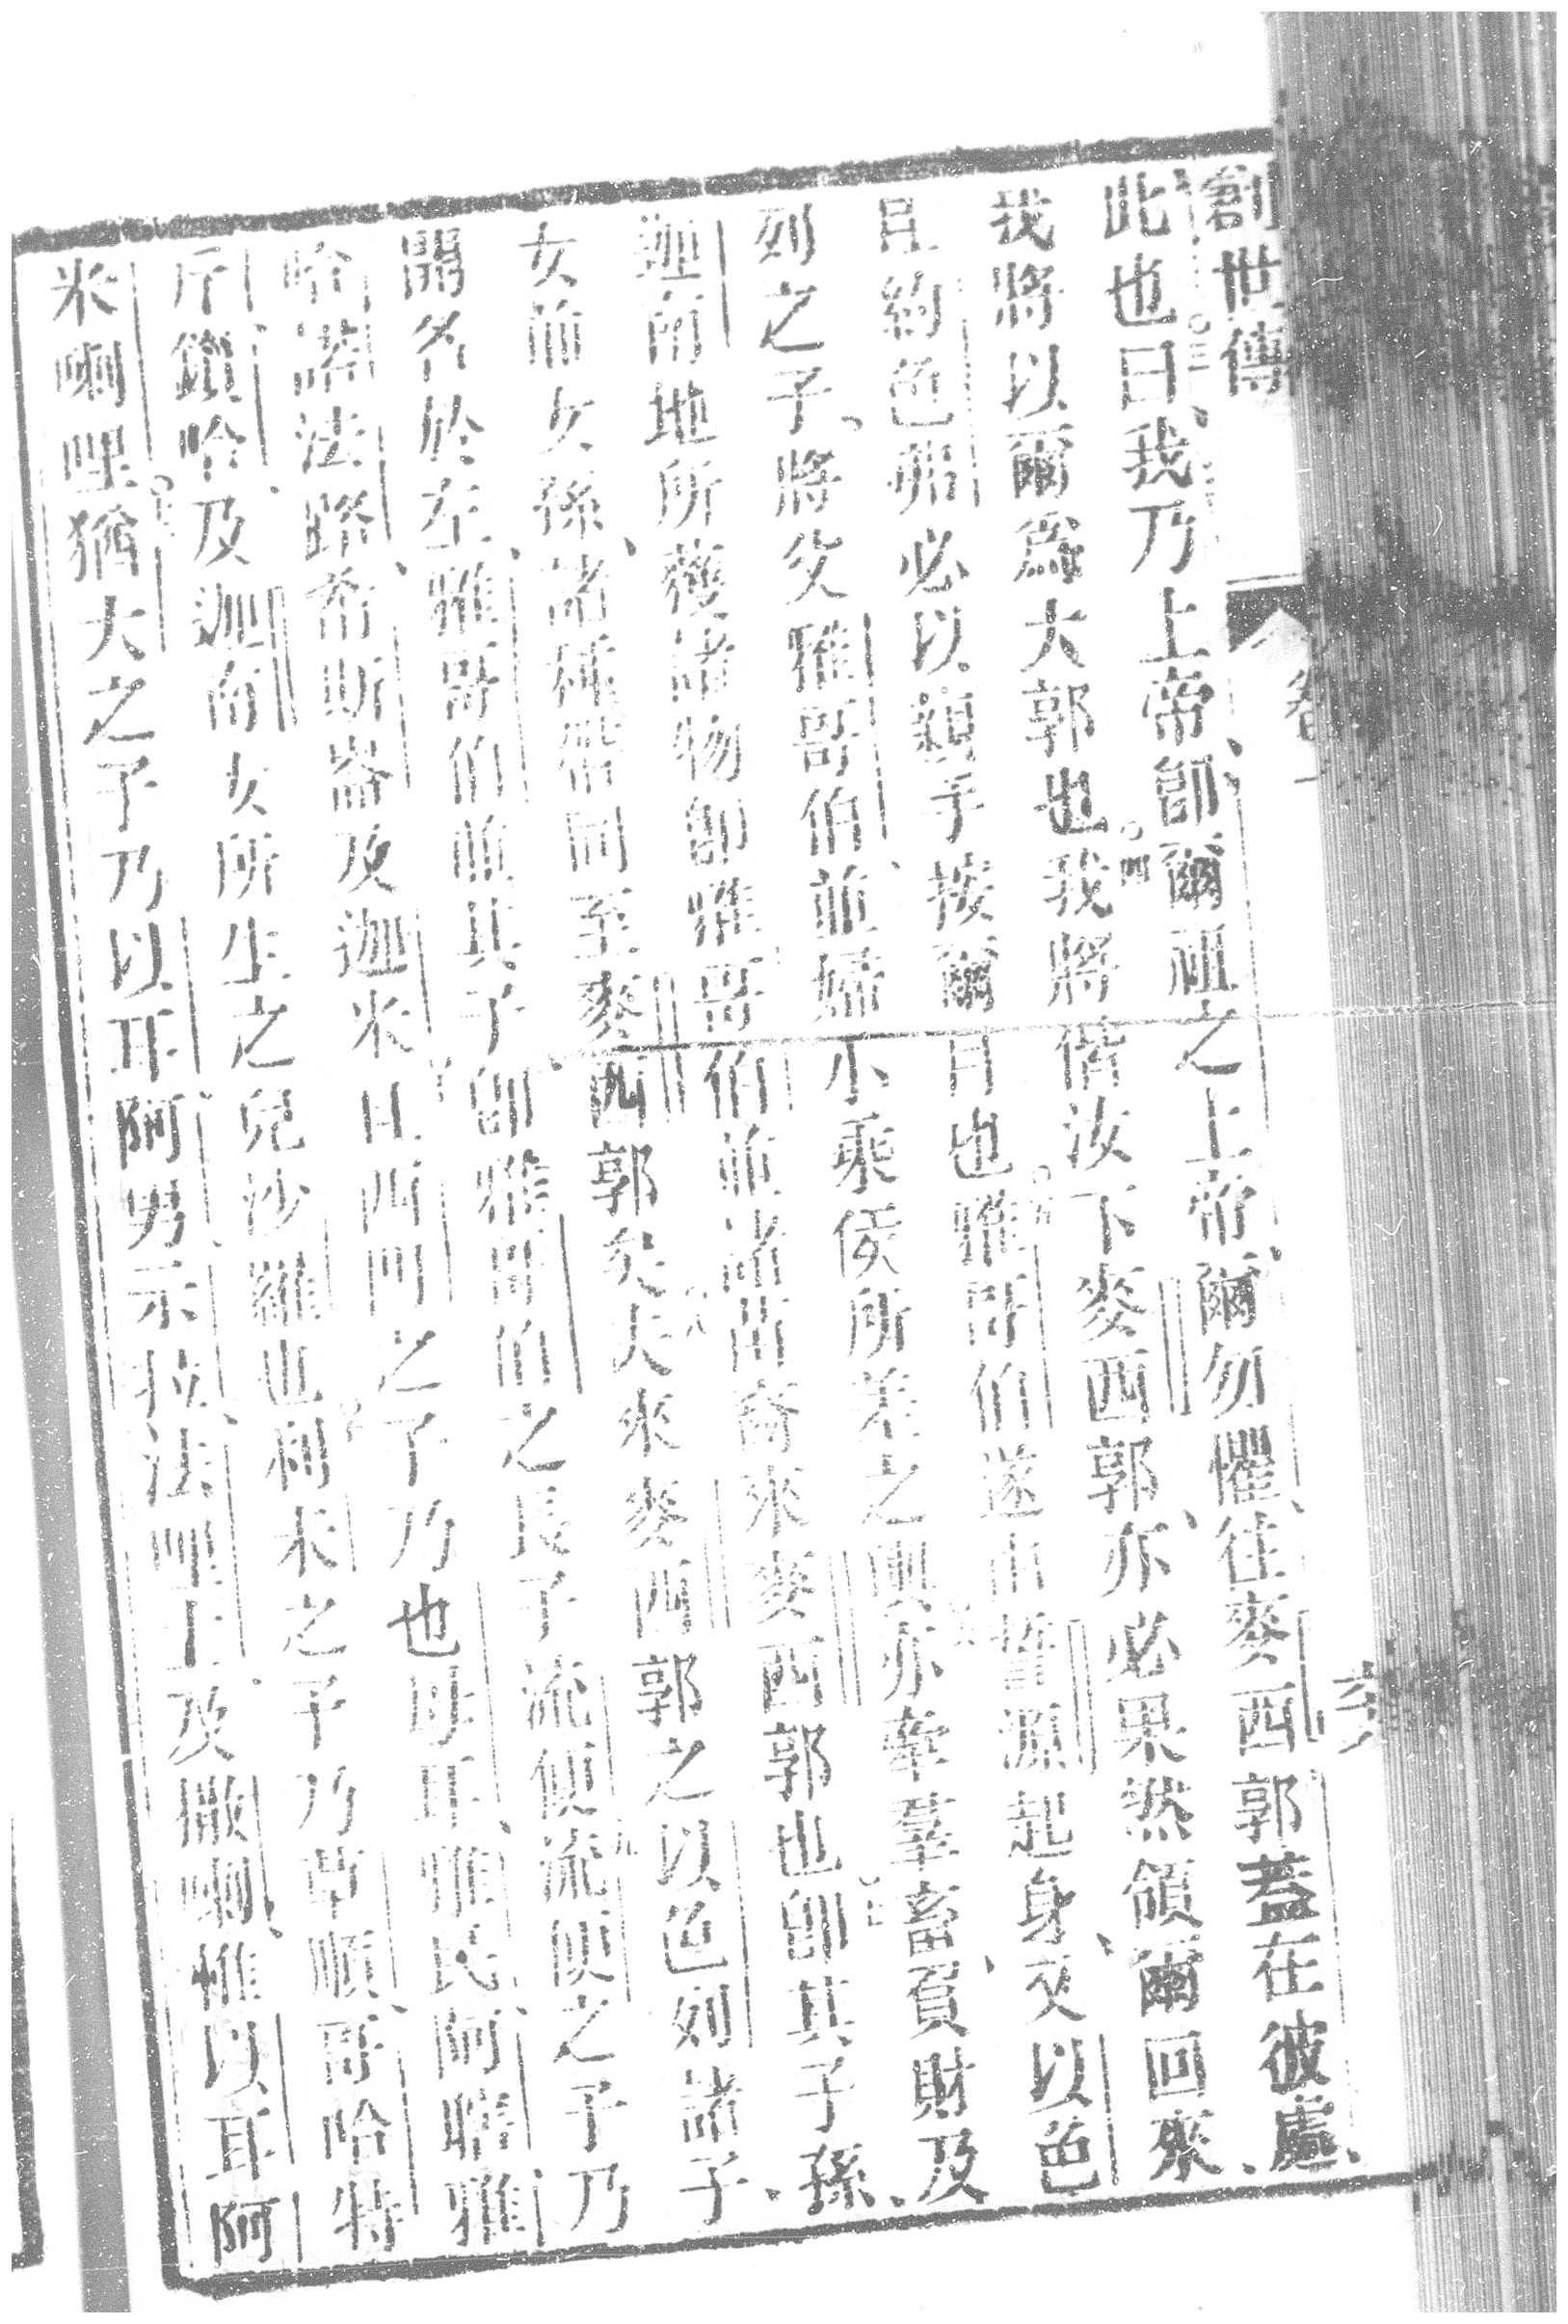 創世傳 卷一
此也○三曰、我乃上帝、卽爾祖之上帝、爾勿懼、往麥西郭蓋在彼處、
我將以爾爲大郭也○四我將偕汝下麥西郭、亦必果然領爾回來、
且約色弗必以親手按爾目也○五雅哥伯遂由誓源起身、夾以色
列之子、將父雅哥伯、並婦小乘侯所差之輿亦牽羣畜負財及
迦南地所獲諸物卽雅哥伯並諸苗裔來麥西郭也○七卽其子孫、
女而女孫、諸種偕同至麥西郭矣○八夫來麥西郭之以色列諸子、
開名於左、雅哥伯並其子、卽雅哥伯之長子流便○九流便之子乃
哈諾法路、希斯崙及迦米○十且西門之子乃也母耳、雅民、阿轄、雅
斤、鎖哈、及迦南女所生之兒沙羅也利未之子乃革順、哥哈特
米喇哩猶大之子乃以耳、阿男、示拉、法哩士、及撒喇、惟以耳阿